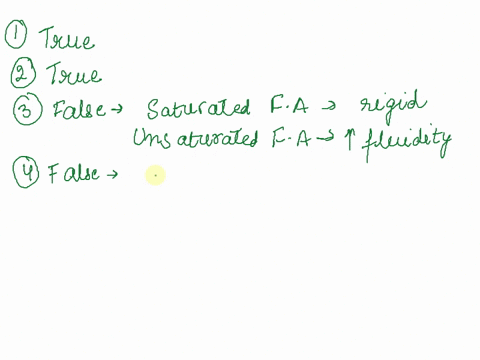 ① True
② True
③ False → Saturated F.A → rigid
Unsaturated F.A → ↑ fluidity
④ False →